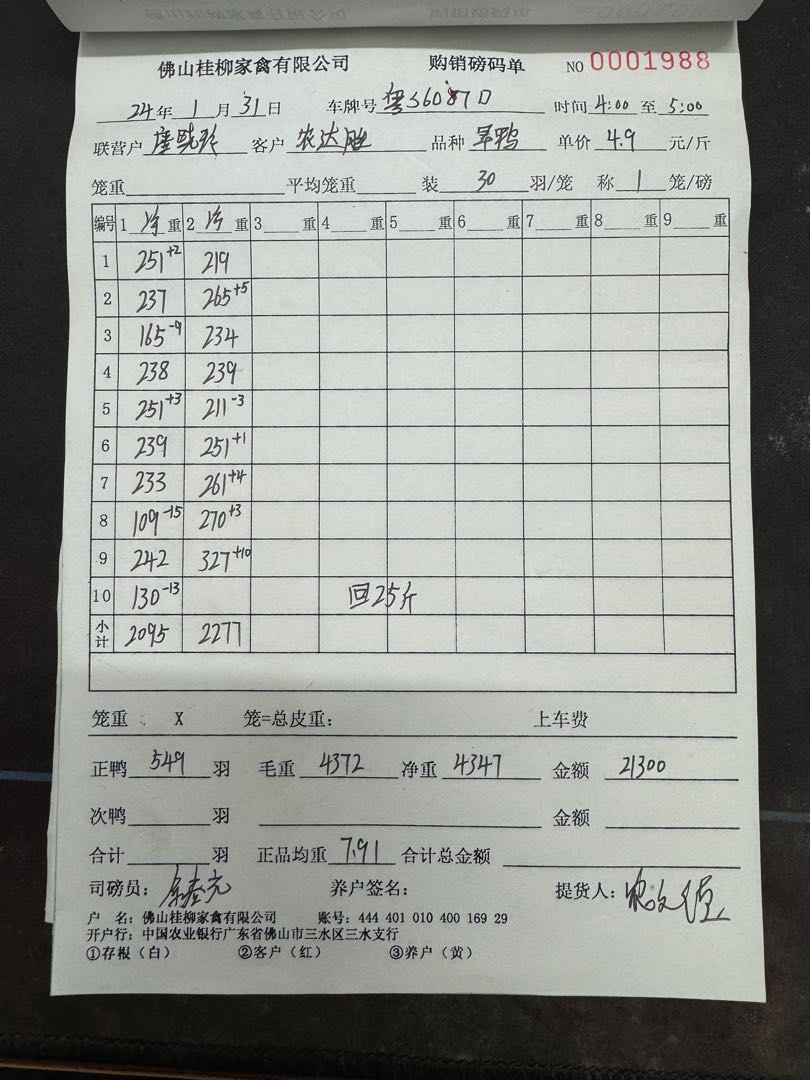 佛山桂柳家禽有限公司 购销磅码单 NO 0001988
24年 1月 31日 车牌号 粤S6087D 时间 4:00 至 5:00
联营户 客户 农达胜 品种 单价 4.9 元/斤
笼重 平均笼重 装 30 羽/笼 称 1 笼/磅
编号 1 净 重 2 净 重 3 重 4 重 5 重 6 重 7 重 8 重 9 重
1 251+2 219
2 237 265+5
3 165-9 234
4 238 239
5 251+3 211-3
6 239 251+1
7 233 261+4
8 109-15 270+3
9 242 327+10
10 130-13 回25斤
小计 2095 2277
笼重 X 笼=总皮重: 上车费
正鸭 549 羽 毛重 4372 净重 4347 金额 21300
次鸭 羽 金额
合计 羽 正品均重 7.91 合计总金额
司磅员: 养户签名: 提货人:
户 名: 佛山桂柳家禽有限公司 账号: 444 401 010 400 169 29
开户行: 中国农业银行广东省佛山市三水区三水支行
①存根(白) ②客户(红) ③养户(黄)